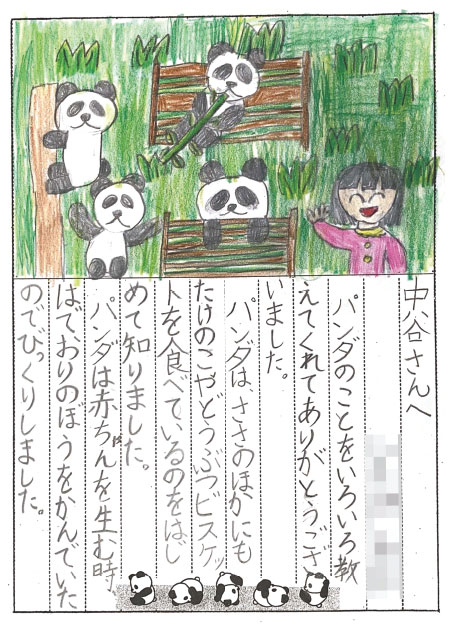 中谷さんへ
パンダのことをいろいろ教
えてくれてありがとうござ
いました。
パンダは、ささのほかにも
たけのこやどうぶつビスケッ
トを食べているのをはじ
めて知りました。
パンダは赤ちゃんを生む時
はで、おりのほうをかんでいた
のでびっくりしました。